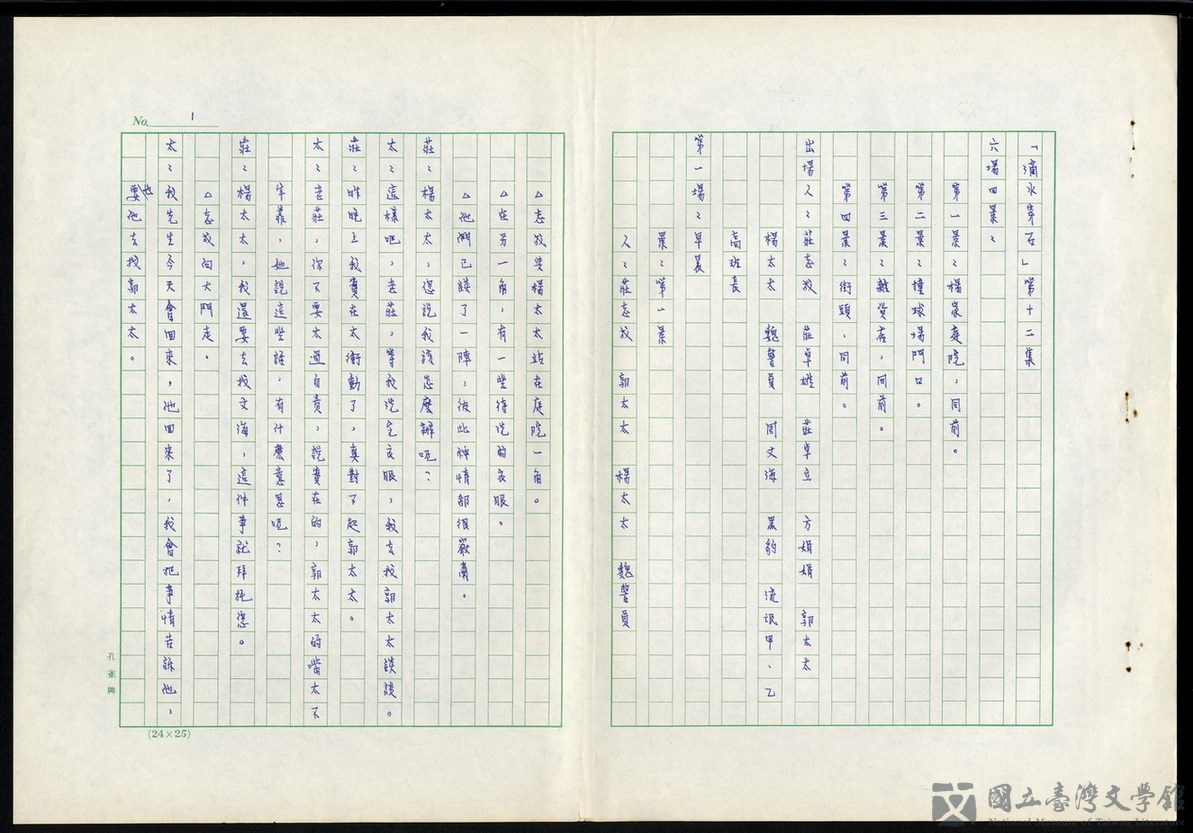 「滴水穿石」第十二集
六場四景：
第一景：楊家庭院，同前。
第二景：撞球場門口。
第三景：雜貨店，同前。
第四景：街頭，同前。
出場人：莊志毅 莊卓嫄 莊卓立 方娟娟 郭太太
楊太太 魏警員 周文海 黑豹 流氓甲、乙
高班長
第一場：早晨
景：第一景
人：莊志毅 郭太太 楊太太 魏警員
No. 1
△志毅與楊太太站在庭院一角。
△在另一角，有一些待洗的衣服。
△他們已談了一陣，彼此神情都很嚴肅。
莊：楊太太，您說我該怎麼辦呢？
太：這樣吧，老莊，等我洗完衣服，我去找郭太太談談。
莊：昨晚上我實在太衝動了，真對不起郭太太。
太：老莊，你不要太過自責，說實在的，郭太太的嘴太不
牢靠，她說這些話，有什麼意思呢？
莊：楊太太，我還要去找文海，這件事就拜託您。
△志毅向大門走。
太：我先生今天會回來，他回來了，我會把事情告訴他，
也要他去找郭太太。
孔雀牌
(24×25)
國立臺灣文學館
National Museum of Taiwan Literature